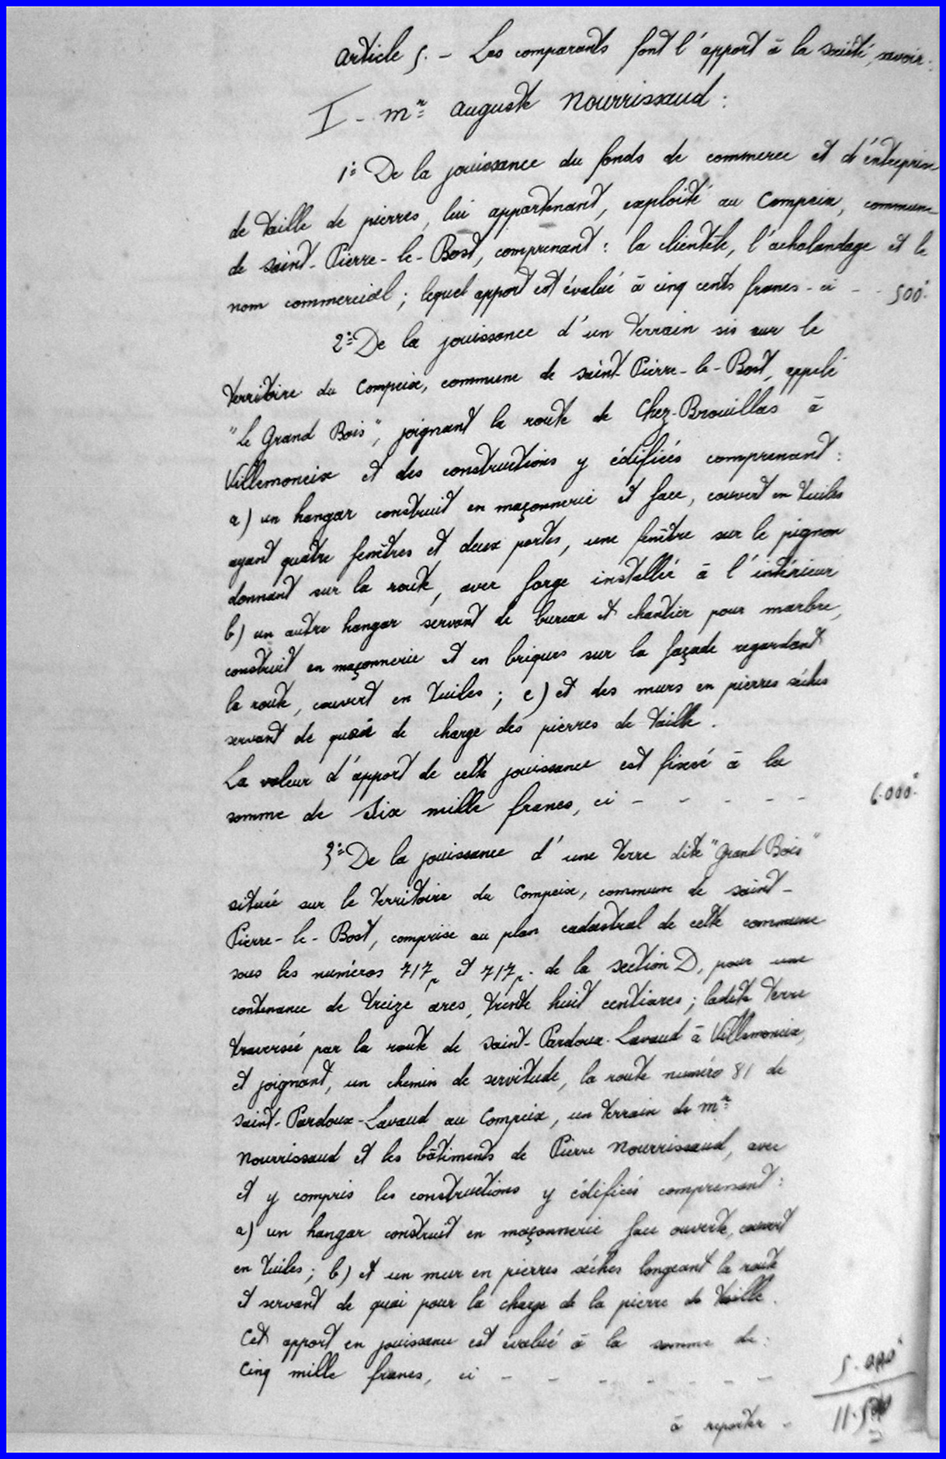 Article 5. - Les comparants font l'apport à la société, savoir:
I - Mr Auguste Nourrissaud:
1° De la jouissance du fonds de commerce et d'entreprise
de taille de pierres, lui appartenant, exploité au Compeix, commune
de Saint-Pierre-le-Bost, comprenant: la clientèle, l'achalandage et le
nom commercial; lequel apport est évalué à cinq cents francs - ci - 500
2° De la jouissance d'un terrain sis sur le
territoire du Compeix, commune de Saint-Pierre-le-Bost, appelé
"Le Grand Bois", joignant la route de Chez-Brouillas à
Villemoneix et des constructions y édifiées comprenant:
a) un hangar construit en maçonnerie et face, couvert en tuiles
ayant quatre fenêtres et deux portes, une fenêtre sur le pignon
donnant sur la route, avec forge installée à l'intérieur
b) un autre hangar servant de bureau et chantier pour marbre,
construit en maçonnerie et en briques sur la façade regardant
la route, couvert en tuiles; c) et des murs en pierres sèches
servant de quai de charge des pierres de taille.
La valeur d'apport de cette jouissance est fixée à la
somme de six mille francs, ci - - - - - 6.000
3° De la jouissance d'une terre dite "Grand Bois"
située sur le territoire du Compeix, commune de Saint-
Pierre-le-Bost, comprise au plan cadastral de cette commune
sous les numéros 717p et 717p. de la section D, pour une
contenance de treize ares, trente huit centiares; ladite terre
traversée par la route de Saint-Pardoux-Lavaud à Villemoneix,
et joignant, un chemin de servitude, la route numéro 81 de
Saint-Pardoux-Lavaud au Compeix, un terrain de Mr
Nourrissaud et les bâtiments de Pierre Nourrissaud, avec
et y compris les constructions y édifiées comprenant:
a) un hangar construit en maçonnerie face ouverte, couvert
en tuiles; b) et un mur en pierres sèches longeant la route
et servant de quai pour la charge de la pierre de taille.
Cet apport en jouissance est évalué à la somme de:
Cinq mille francs, ci - - - - - - - 5.000
à reporter - 11.500